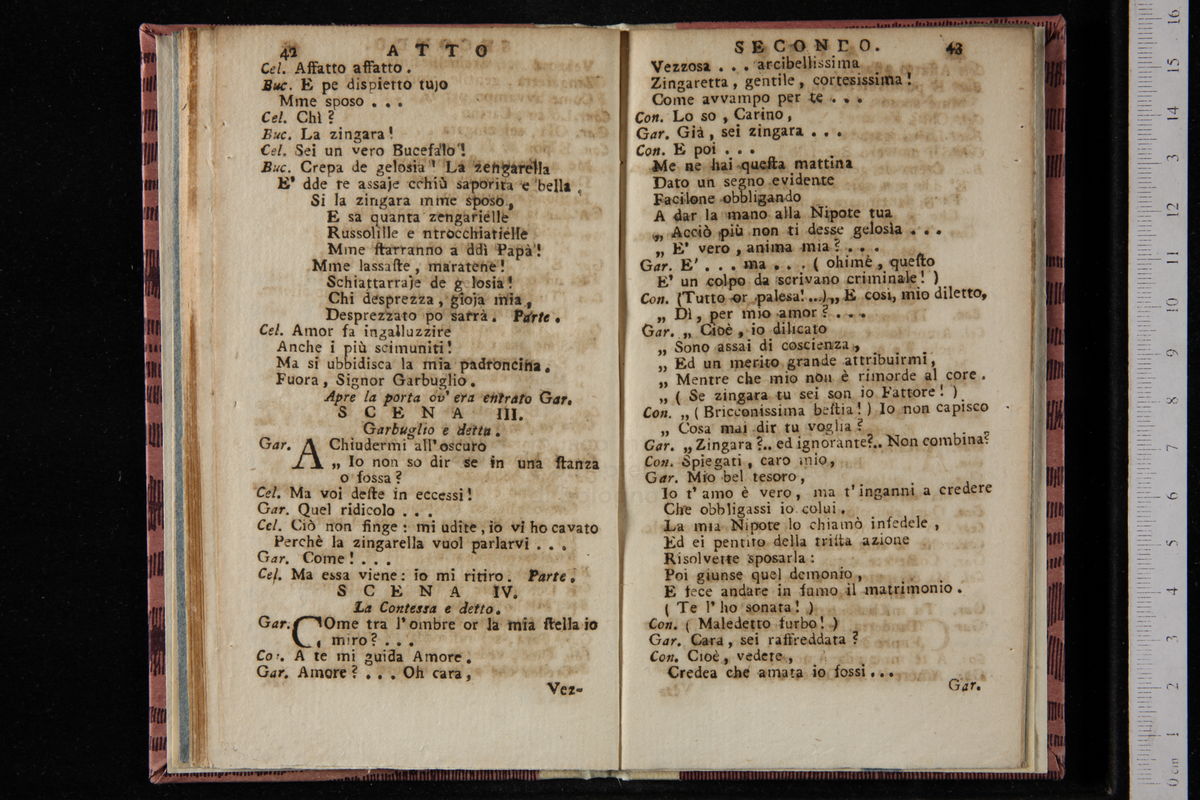 42 ATTO
Cel. Affatto affatto.
Buc. E pe dispietto tujo
Mme sposo . . .
Cel. Chì?
Buc. La zingara!
Cel. Sei un vero Bucefalo!
Buc. Crepa de gelosia! La zengarella
E' dde te assaje cchiù saporita e bella,
Si la zingara mme sposo,
E sa quanta zengarielle
Russolille e ntrocchiatielle
Mme ſtarranno a ddì Papà!
Mme lassaſte, maratene!
Schiattarraje de gelosia!
Chi desprezza, gioja mia,
Desprezzato po sarrà. Parte.
Cel. Amor fa ingalluzzire
Anche i più scimuniti!
Ma si ubbidisca la mia padroncina.
Fuora, Signor Garbuglio.
Apre la porta ov' era entrato Gar.
SCENA III.
Garbuglio e detta.
Gar. A Chiudermi all' oscuro
„ Io non so dir se in una ſtanza
o fossa?
Cel. Ma voi deſte in eccessi!
Gar. Quel ridicolo . . .
Cel. Ciò non finge: mi udite, io vi ho cavato
Perchè la zingarella vuol parlarvi . . .
Gar. Come! . . .
Cel. Ma essa viene: io mi ritiro. Parte.
SCENA IV.
La Contessa e detto.
Gar. COme tra l' ombre or la mia ſtella io
miro? . . .
Con. A te mi guida Amore.
Gar. Amore? . . . Oh cara,
Vez-
SECONDO. 43
Vezzosa . . . arcibellissima
Zingaretta, gentile, cortesissima!
Come avvampo per te . . .
Con. Lo so, Carino,
Gar. Già, sei zingara . . .
Con. E poi . . .
Me ne hai queſta mattina
Dato un segno evidente
Facilone obbligando
A dar la mano alla Nipote tua
„ Acciò più non ti desse gelosia . . .
„ E' vero, anima mia? . . .
Gar. E' . . . ma . . . ( ohimè, queſto
E' un colpo da scrivano criminale! )
Con. (Tutto or palesa! ...) „ E così, mio diletto,
„ Dì, per mio amor? . . .
Gar. „ Cioè, io dilicato
„ Sono assai di coscienza,
„ Ed un merito grande attribuirmi,
„ Mentre che mio non è rimorde al core.
„ ( Se zingara tu sei son io Fattore! )
Con. „ ( Bricconissima beſtia! ) Io non capisco
„ Cosa mai dir tu voglia?
Gar. „ Zingara?.. ed ignorante?.. Non combina?
Con. Spiegati, caro mio,
Gar. Mio bel tesoro,
Io t' amo è vero, ma t' inganni a credere
Che obbligassi io colui.
La mia Nipote lo chiamò infedele,
Ed ei pentito della triſta azione
Risolvette sposarla:
Poi giunse quel demonio,
E fece andare in fumo il matrimonio.
( Te l' ho sonata! )
Con. ( Maledetto furbo! )
Gar. Cara, sei raffreddata?
Con. Cioè, vedete,
Credea che amata io fossi...
Gar.
16
15
14
13
12
11
10
9
8
7
6
5
4
3
2
1
0 cm